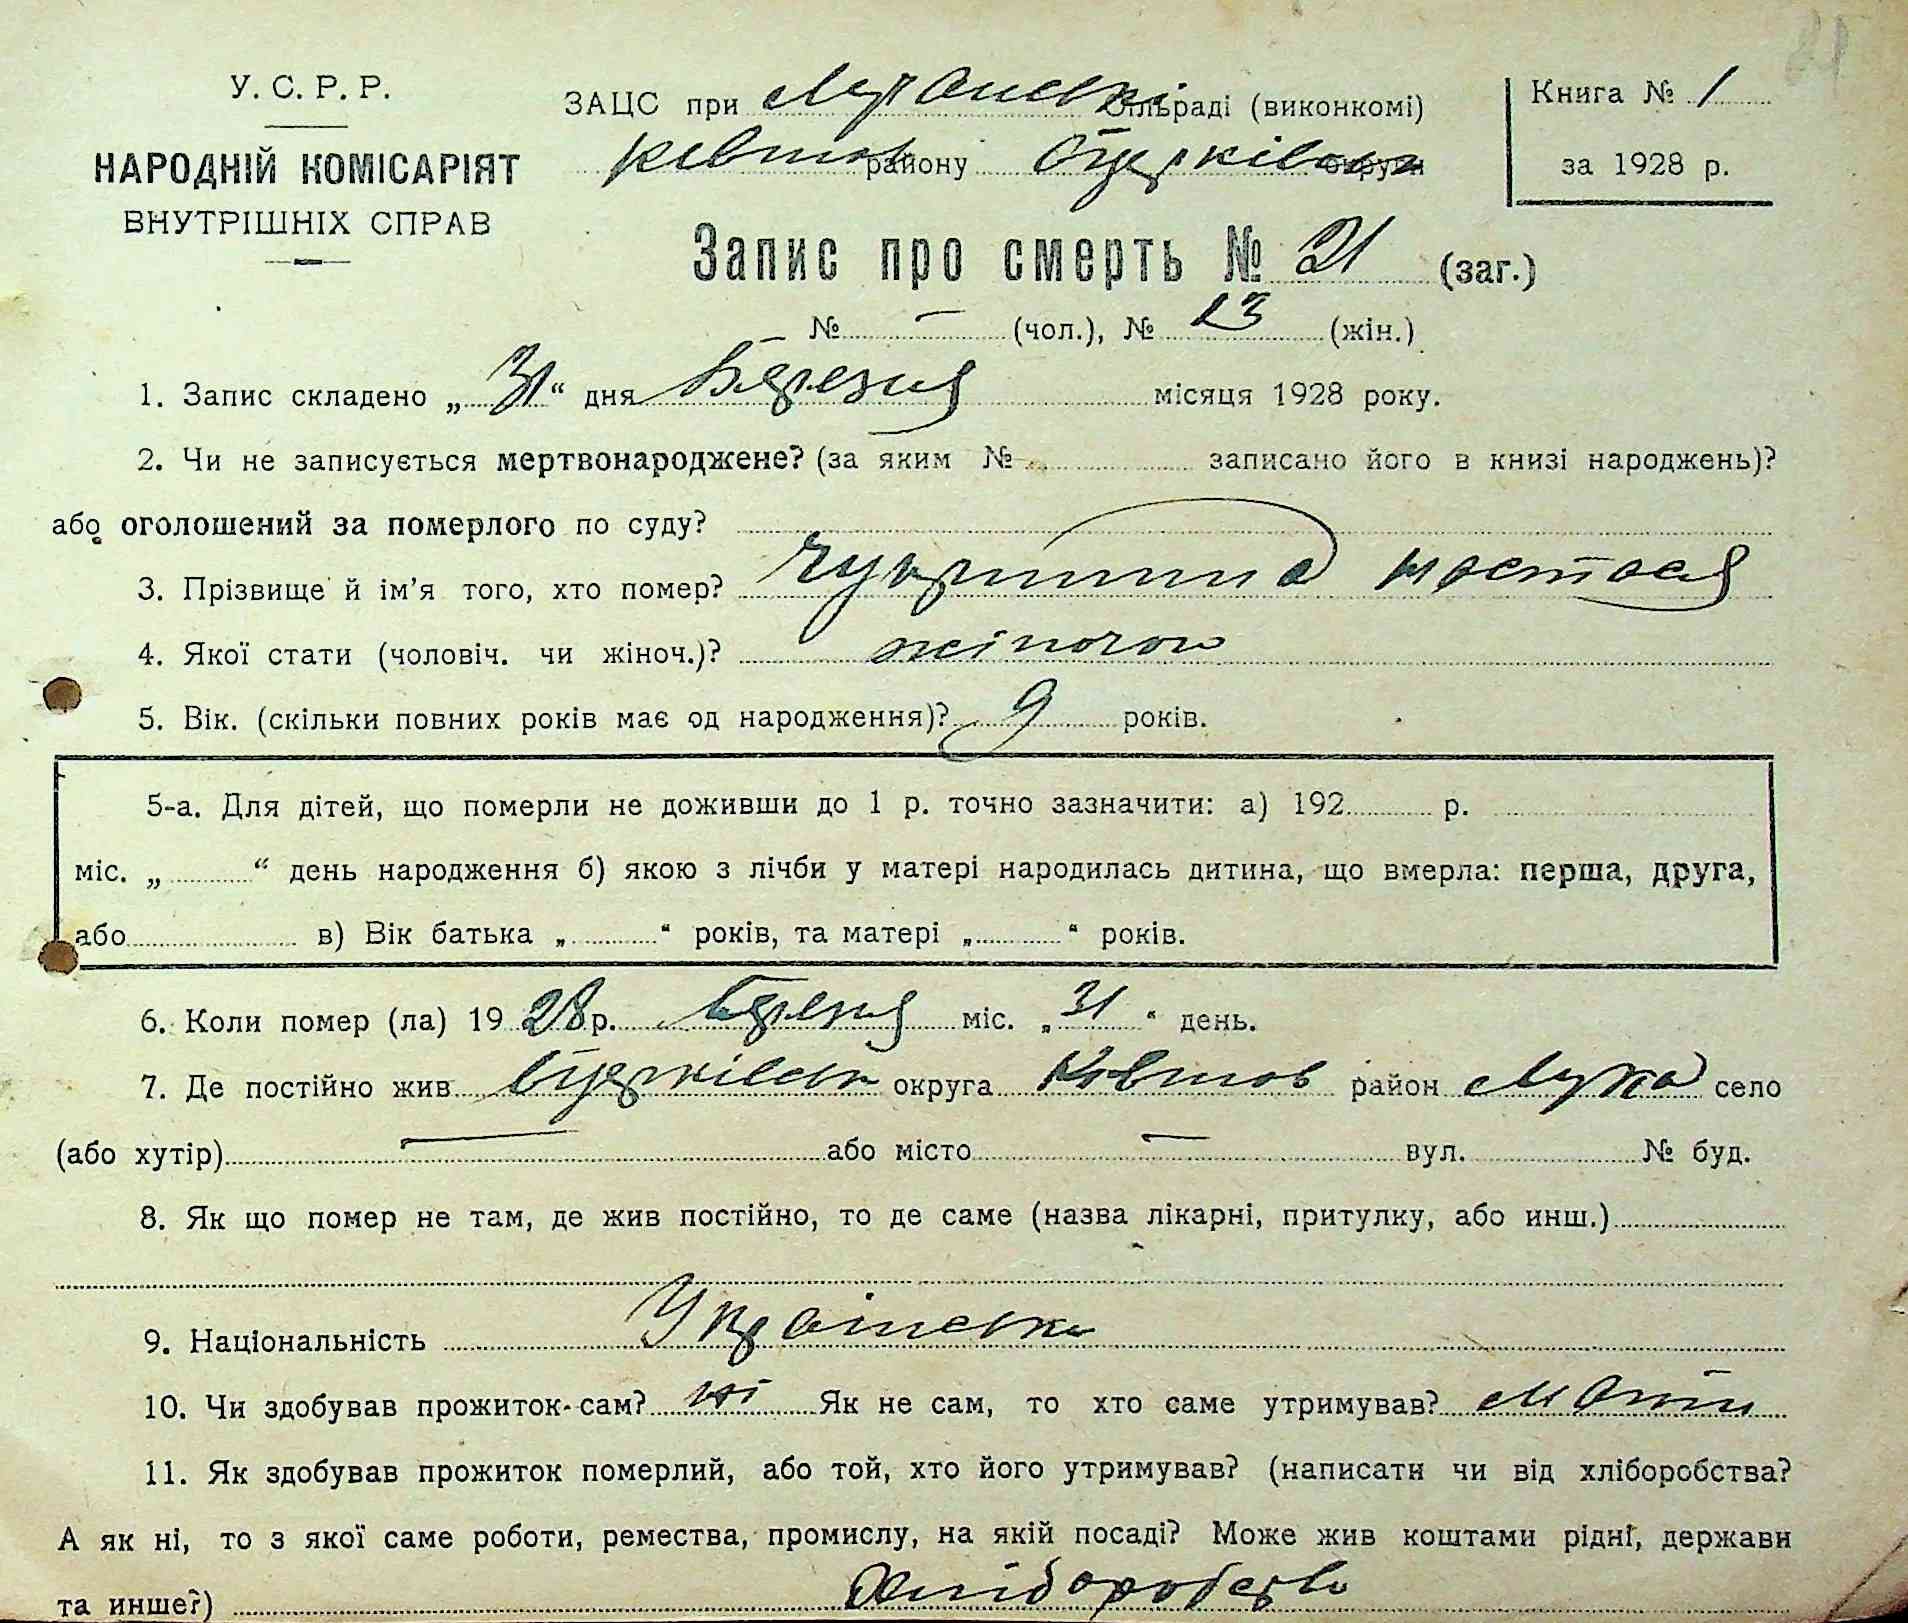 У. С. Р. Р.
НАРОДНІЙ КОМІСАРІЯТ
ВНУТРІШНІХ СПРАВ
ЗАЦС при Луканській сільраді (виконкомі)
району Бцерківськ округи
Книга № 1
за 1928 р.
Запис про смерть № 21 (заг.)
№ — (чол.), № 13 (жін.)
1. Запис складено „ 31 “ дня Березня місяця 1928 року.
2. Чи не записується мертвонароджене? (за яким № записано його в книзі народжень)?
або оголошений за померлого по суду?
3. Прізвище й ім'я того, хто помер? Чуприна Настася
4. Якої стати (чоловіч. чи жіноч.)? жіночої
5. Вік. (скільки повних років має од народження)? 9 років.
5-а. Для дітей, що померли не доживши до 1 р. точно зазначити: а) 192 р.
міс. „ “ день народження б) якою з лічби у матері народилась дитина, що вмерла: перша, друга,
або в) Вік батька „ “ років, та матері „ “ років.
6. Коли помер (ла) 19 28 р. Березня міс. „ 31 “ день.
7. Де постійно жив Бцерківськ округа район Лука село
(або хутір) — або місто — вул. № буд.
8. Як що помер не там, де жив постійно, то де саме (назва лікарні, притулку, або инш.)
9. Національність Українська
10. Чи здобував прожиток сам? ні Як не сам, то хто саме утримував? Мати
11. Як здобував прожиток померлий, або той, хто його утримував? (написати чи від хліборобства?
А як ні, то з якої саме роботи, ремества, промислу, на якій посаді? Може жив коштами рідні, держави
та инше?) Хліборобство